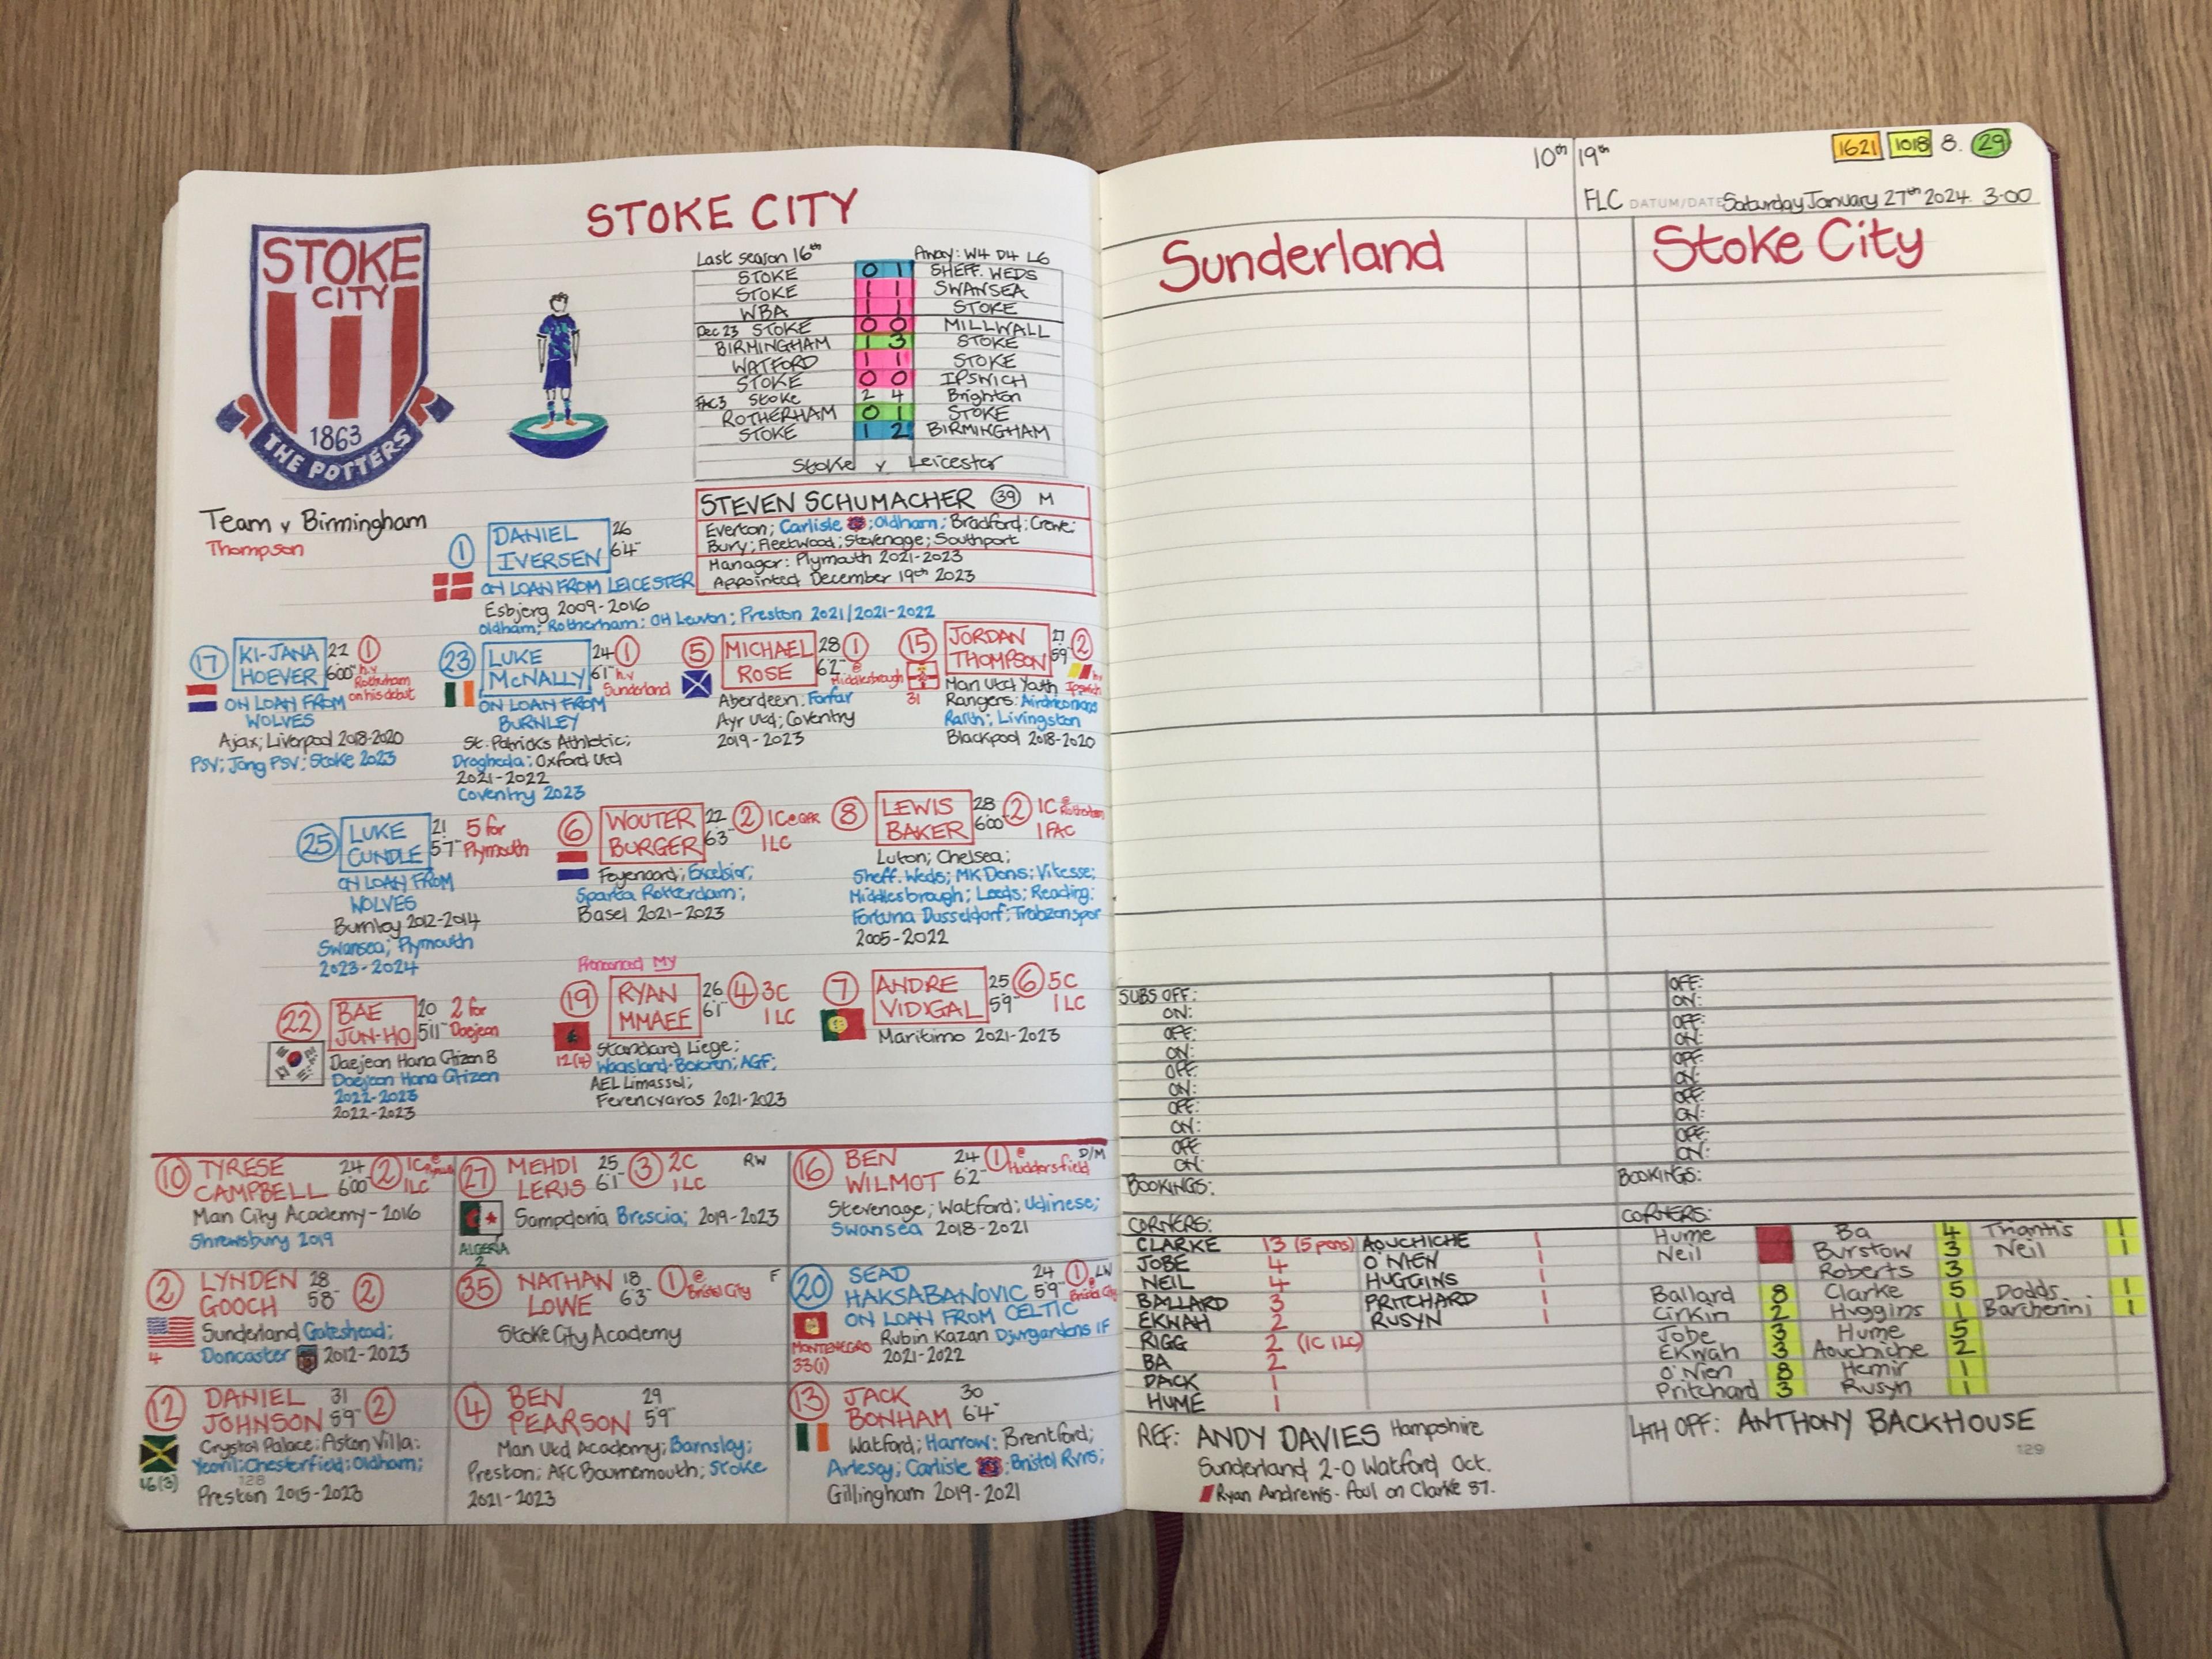 STOKE CITY
STOKE
CITY
1863
THE POTTERS
Last season 16th Away: W4 D4 L6
STOKE 0 1 SHEFF. WEDS
STOKE 1 1 SWANSEA
WBA 1 1 STOKE
Dec 23 STOKE 0 0 MILLWALL
BIRMINGHAM 1 3 STOKE
WATFORD 1 1 STOKE
STOKE 0 0 IPSWICH
FAC3 Stoke 2 4 Brighton
ROTHERHAM 0 1 STOKE
STOKE 1 2 BIRMINGHAM
Stoke v Leicester
STEVEN SCHUMACHER 39 M
Everton; Carlisle; Oldham; Bradford; Crewe;
Bury; Fleetwood; Stevenage; Southport
Manager: Plymouth 2021-2023
Appointed December 19th 2023
Team v Birmingham
Thompson
1 DANIEL 26
IVERSEN 6'4"
ON LOAN FROM LEICESTER
Esbjerg 2009-2016
Oldham; Rotherham; OH Leuven; Preston 2021/2021-2022
17 KI-JANA 22 1
HOEVER 6'00" h.v
Rotherham
on his debut
ON LOAN FROM
WOLVES
Ajax; Liverpool 2018-2020
PSV; Jong PSV; Stoke 2023
23 LUKE 24 1
McNALLY 6'1" h.v
Sunderland
ON LOAN FROM
BURNLEY
St. Patricks Athletic;
Drogheda; Oxford Utd
2021-2022
Coventry 2023
5 MICHAEL 28 1
ROSE 6'2" @
Middlesbrough
Aberdeen; Forfar
Ayr Utd; Coventry
2019-2023
15 JORDAN 27 2
THOMPSON 5'9" h.v
Ipswich
31
Man Utd Youth
Rangers; Airdrieonians
Raith; Livingston
Blackpool 2018-2020
25 LUKE 21 5 for
CUNDLE 5'7" Plymouth
ON LOAN FROM
WOLVES
Burnley 2012-2014
Swansea; Plymouth
2023-2024
6 WOUTER 22 2 1C @ QPR
BURGER 6'3" 1LC
Feyenoord; Excelsior;
Sparta Rotterdam;
Basel 2021-2023
8 LEWIS 28 2 1C @ Rotherham
BAKER 6'00" 1FAC
Luton; Chelsea;
Sheff. Weds; MK Dons; Vitesse;
Middlesbrough; Leeds; Reading;
Fortuna Dusseldorf; Trabzonspor
2005-2022
22 BAE 20 2 for
JUN-HO 5'11" Daejeon
Daejeon Hana Citizen B
Daejeon Hana Citizen
2022-2023
2022-2023
Pronounced MY
19 RYAN 26 4 3C
MMAEE 6'1" 1LC
12(4)
Standard Liege;
Waasland-Beveren; AGF;
AEL Limassol;
Ferencvaros 2021-2023
7 ANDRE 25 6 5C
VIDIGAL 5'9" 1LC
Maritimo 2021-2023
10 TYRESE 24 2 1C @ Plymouth
CAMPBELL 6'00" 1LC
Man City Academy - 2016
Shrewsbury 2019
27 MEHDI 25 3 2C RW
LERIS 6'1" 1LC
ALGERIA
2
Sampdoria Brescia; 2019-2023
16 BEN 24 1 @ D/M
WILMOT 6'2" Huddersfield
Stevenage; Watford; Udinese;
Swansea 2018-2021
2 LYNDEN 28 2
GOOCH 5'8"
Sunderland Gateshead;
4 Doncaster 2012-2023
35 NATHAN 18 1 @ F
LOWE 6'3" Bristol City
Stoke City Academy
20 SEAD 24 1 LW
HAKSABANOVIC 5'9" @ Bristol City
ON LOAN FROM CELTIC
MONTENEGRO
33(1)
Rubin Kazan Djurgardens IF
2021-2022
12 DANIEL 31 2
JOHNSON 5'9"
16(3)
Crystal Palace; Aston Villa;
Yeovil; Chesterfield; Oldham;
128
Preston 2015-2023
4 BEN 29
PEARSON 5'9"
Man Utd Academy; Barnsley;
Preston; AFC Bournemouth; Stoke
2021-2023
13 JACK 30
BONHAM 6'4"
Watford; Harrow; Brentford;
Arlesey; Carlisle; Bristol Rvrs;
Gillingham 2019-2021
10th 19th 1621 1018 8. 29
FLC DATUM/DATE Saturday January 27th 2024. 3-00
Sunderland Stoke City
SUBS OFF: OFF:
ON: ON:
OFF: OFF:
ON: ON:
OFF: OFF:
ON: ON:
OFF: OFF:
ON: ON:
OFF OFF:
ON: ON:
BOOKINGS: BOOKINGS:
CORNERS: CORNERS:
CLARKE 13 (5 pens) AOUCHICHE 1
JOBE 4 O'NIEN 1
NEIL 4 HUGGINS 1
BALLARD 3 PRITCHARD 1
EKWAH 2 RUSYN 1
RIGG 2 (1C 1LC)
BA 2
DACK 1
HUME 1
Hume Ba 4 Triantis 1
Neil Burstow 3 Neil 1
Roberts 3
Ballard 8 Clarke 5 Dodds 1
Cirkin 2 Huggins 1 Barcherini 1
Jobe 3 Hume 5
Ekwah 3 Aouchiche 2
O'Nien 8 Hemir 1
Pritchard 3 Rusyn 1
REF: ANDY DAVIES Hampshire
Sunderland 2-0 Watford Oct.
Ryan Andrews - Foul on Clarke 87.
4TH OFF: ANTHONY BACKHOUSE
129